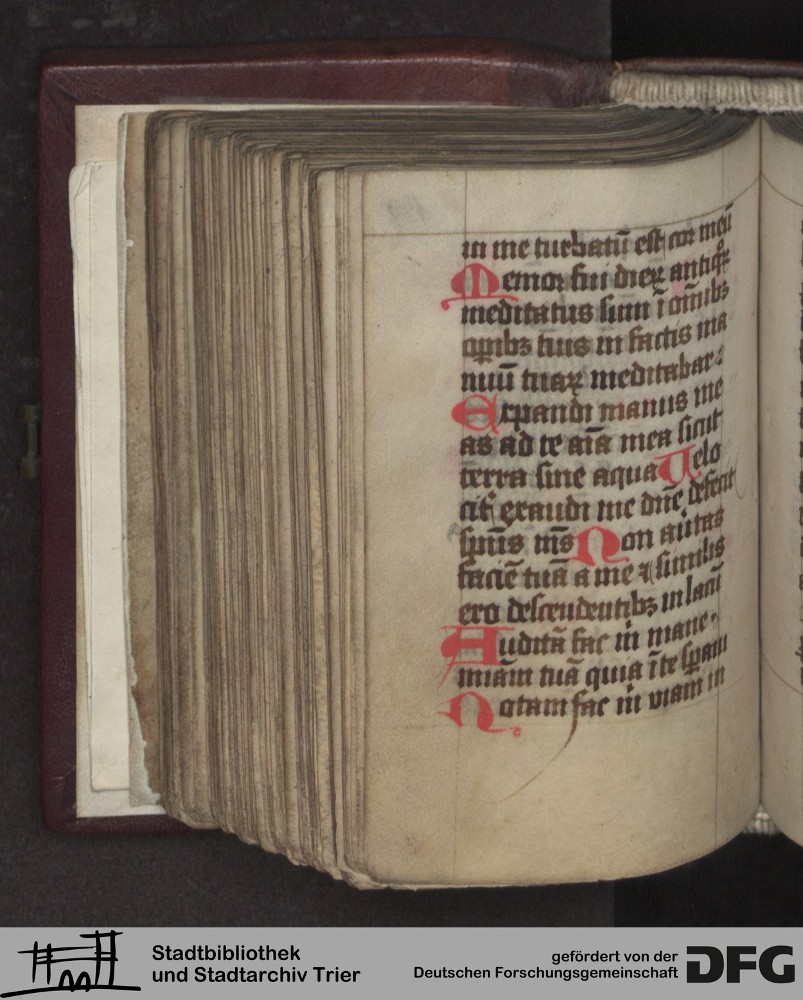 in me turbatū est cor meū
Memor fui dieꝝ antiqꝝ
meditatus sum ī om̄ibꝫ
oꝑibꝫ tuis in factis ma
nuū tuaꝝ meditabar:
Expandi manus me
as ad te aīa mea sicut
terra sine aqua Uelo
cit̾ exaudi me dn̄e defecit
sp̄us m̄s Non au̾tas
faciē tuā a me ⁊ similis
ero descendentibꝫ in lacū
Auditā fac m̄ mane ·
m̄iam tuā quia ī te sꝑaui
Notam fac m̄ viam in
Stadtbibliothek
und Stadtarchiv Trier
gefördert von der
Deutschen Forschungsgemeinschaft
DFG